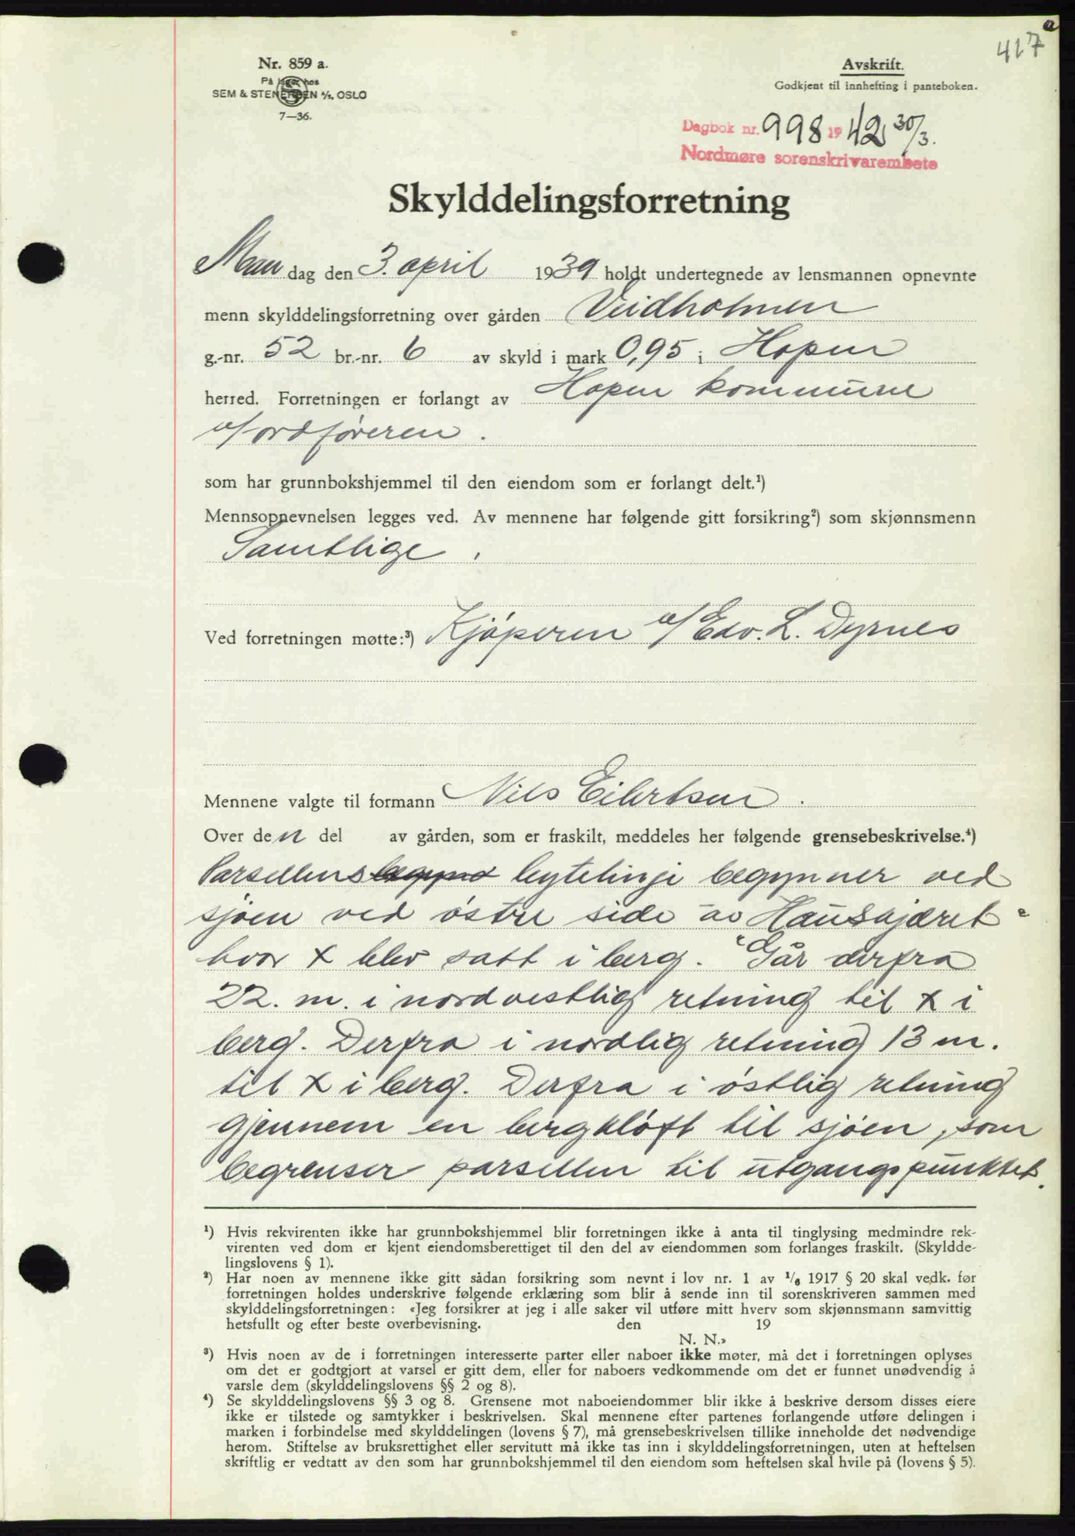 417 a
Nr. 859 a.
På lager hos
SEM & STENERSEN A/S, OSLO
7—36.
Avskrift.
Godkjent til innhefting i panteboken.
Dagbok nr. 998 1942 30/3.
Nordmøre sorenskrivarembete
Skylddelingsforretning
Man dag den 3. april 1939 holdt undertegnede av lensmannen opnevnte
menn skylddelingsforretning over gården Veidholmen
g.-nr. 52 br.-nr. 6 av skyld i mark 0,95 i Hopen
herred. Forretningen er forlangt av Hopen kommune
v/ordføreren.
som har grunnbokshjemmel til den eiendom som er forlangt delt.¹)
Mennsopnevnelsen legges ved. Av mennene har følgende gitt forsikring²) som skjønnsmenn
Samtlige.
Ved forretningen møtte:³) Kjøperen v/Edv. L. Dyrnes
Mennene valgte til formann Nils Eilertsen.
Over den del av gården, som er fraskilt, meddeles her følgende grensebeskrivelse.⁴)
Parsellens begynd bytelinje begynner ved
sjøen ved østre side av "Hauskjæret"
hvor x blev satt i berg. Går derfra
22. m. i nordvestlig retning til x i
berg. Derfra i nordlig retning 13 m.
til x i berg. Derfra i østlig retning
gjennem en bergkløft til sjøen, som
begrenser parsellen til utgangspunktet.
¹) Hvis rekvirenten ikke har grunnbokshjemmel blir forretningen ikke å anta til tinglysing medmindre rek-
virenten ved dom er kjent eiendomsberettiget til den del av eiendommen som forlanges fraskilt. (Skyldde-
lingslovens § 1).
²) Har noen av mennene ikke gitt sådan forsikring som nevnt i lov nr. 1 av 1/6 1917 § 20 skal vedk. før
forretningen holdes underskrive følgende erklæring som blir å sende inn til sorenskriveren sammen med
skylddelingsforretningen: «Jeg forsikrer at jeg i alle saker vil utføre mitt hverv som skjønnsmann samvittig
hetsfullt og efter beste overbevisning. den 19
N. N.»
³) Hvis noen av de i forretningen interesserte parter eller naboer ikke møter, må det i forretningen oplyses
om det er godtgjort at varsel er gitt dem, eller for naboers vedkommende om det er funnet unødvendig å
varsle dem (skylddelingslovens §§ 2 og 8).
⁴) Se skylddelingslovens §§ 3 og 8. Grensene mot naboeiendommer blir ikke å beskrive dersom disses eiere
ikke er tilstede og samtykker i beskrivelsen. Skal mennene efter partenes forlangende utføre delingen i
marken i forbindelse med skylddelingen (lovens § 7), må grensebeskrivelsen tillike inneholde det nødvendige
herom. Stiftelse av bruksrettighet eller servitutt må ikke tas inn i skylddelingsforretningen, uten at heftelsen
skriftlig er vedtatt av den som har grunnbokshjemmel til den eiendom som heftelsen skal hvile på (lovens § 5).